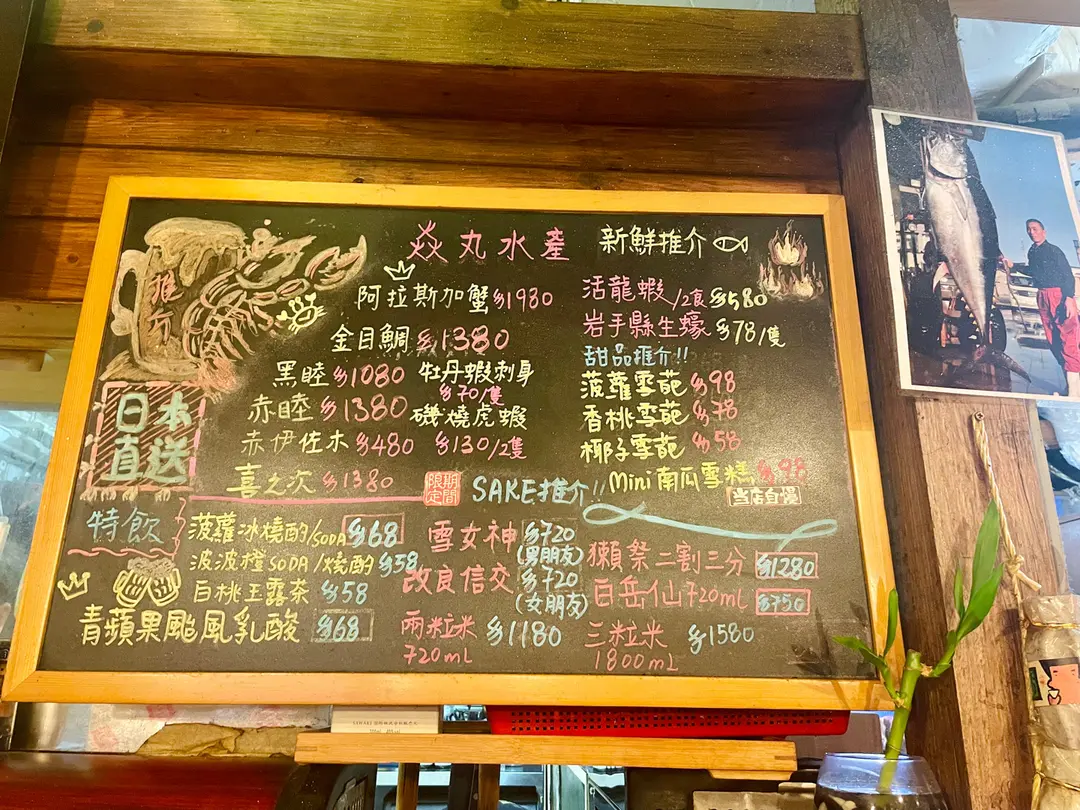 焱丸水產 新鮮推介
推介
阿拉斯加蟹 $1980
金目鯛 $1380
黑睦 $1080
赤睦 $1380
赤伊佐木 $480
喜之次 $1380
牡丹蝦刺身
$70/隻
磯燒虎蝦
$130/2隻
期間限定
日本
直送
活龍蝦/2食 $580
岩手縣生蠔 $78/隻
甜品推介!!
菠蘿雪葩 $98
香桃雪葩 $78
椰子雪葩 $58
Mini南瓜雪糕
当店自慢
特飲
菠蘿冰燒酌/SODA $68
波波橙SODA/燒酌 $58
白桃玉露茶 $58
青蘋果颱風乳酸 $68
SAKE推介!!
雪女神 $720
(男朋友)
改良信交 $720
(女朋友)
兩粒米 $1180
720mL
獺祭二割三分 $1280
白岳仙720mL $750
三粒米 $1580
1800mL